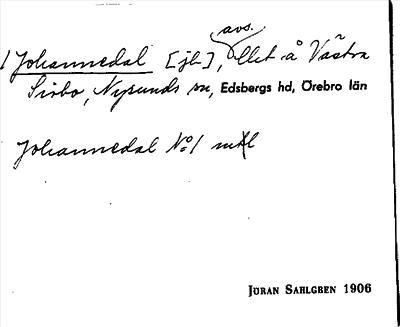 avs.
Johannedal [jb-], lht å Västra
Sirbo, Nysunds sn, Edsbergs hd, Örebro län
Johannedal No 1 mtl
JÖRAN SAHLGREN 1906